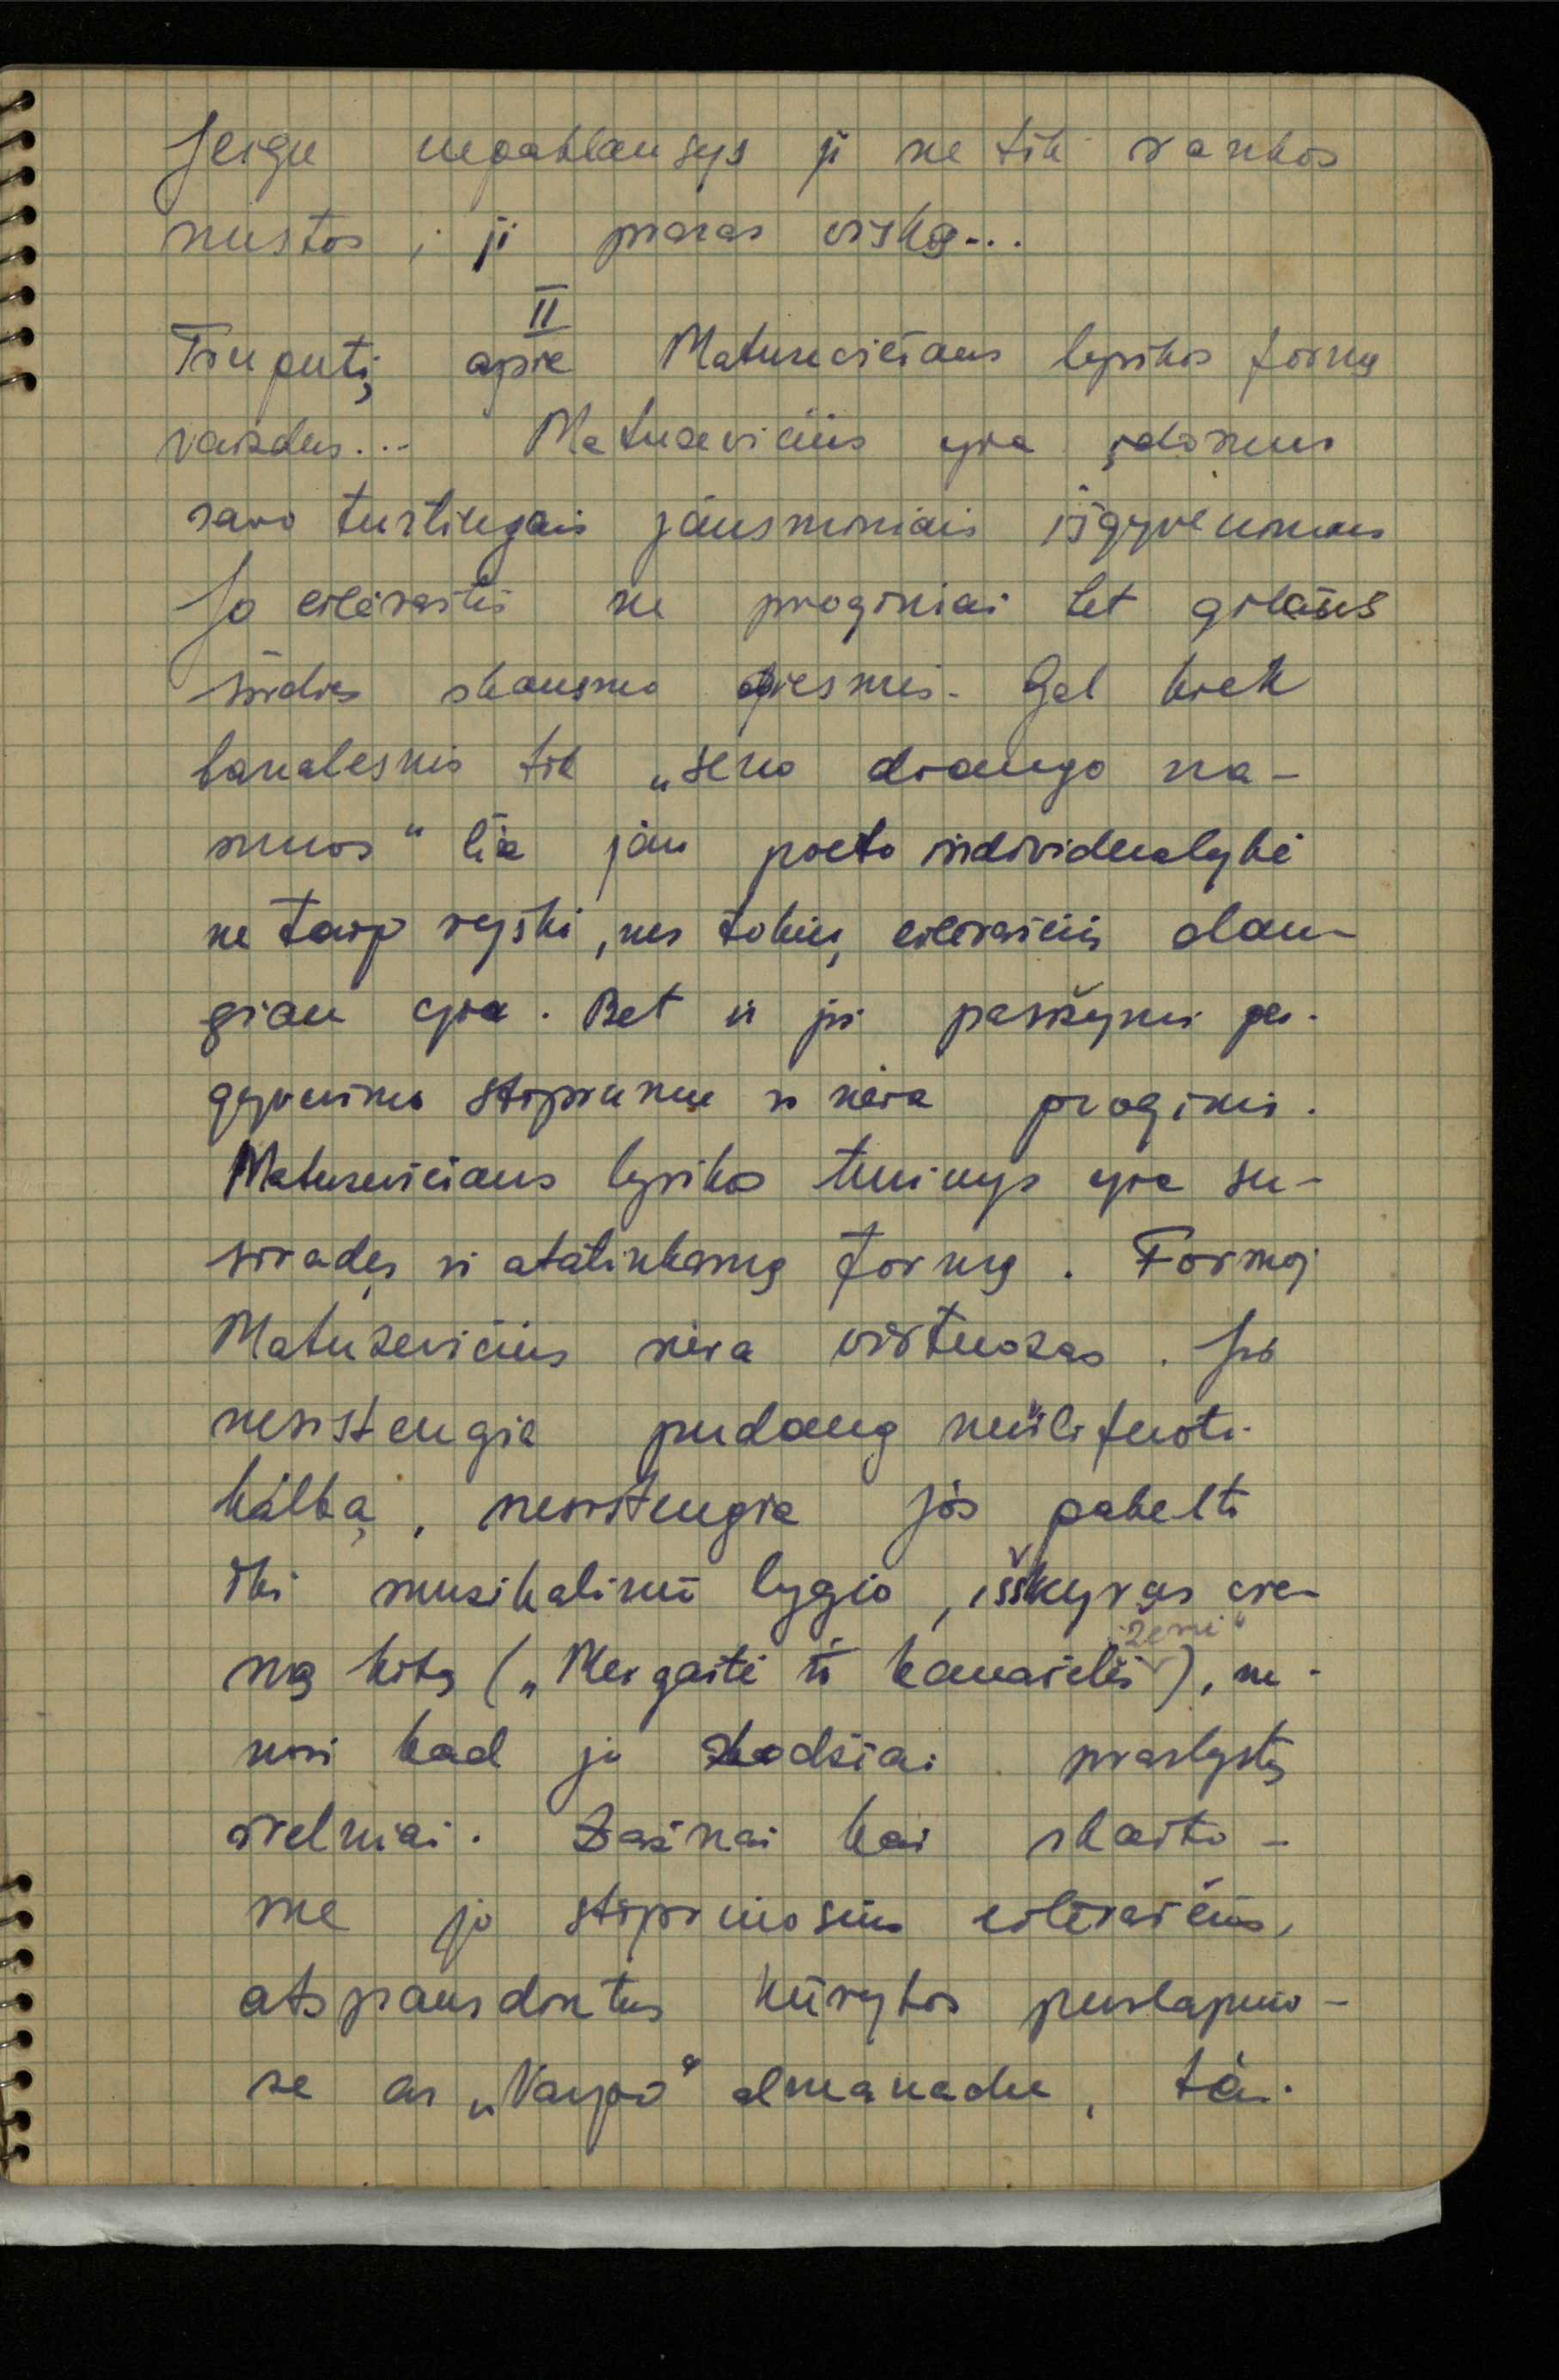 Jeigu nepaklausys ji ne tik rankos
nustos, ji praras viską...
II
Truputį apie Matusevičiaus lyrikos formą
vaizdus... Matusevičius yra įdomus
savo turtingais jausminiais išgyvenimais
Jo eilėraščiai ne proginiai bet gilaus
širdies skausmo giesmės. Gal kiek
banalesnis tik „seno draugo na-
muos“ čia jau poeto individualybė
ne taip ryški, nes tokių eilėraščių dau-
giau yra. Bet ir jis pasižymi per-
gyvenimo stiprumu ir nėra proginis.
Matusevičiaus lyrikos turinys yra su-
siradęs ir atatinkamą formą. Formoj
Matusevičius nėra virtuozas. Jis
nesistengia nušlifuoti
kalbą, nesistengia jos pakelti
iki muzikalinio lygio, išskyrus vie-
ną kitą („Mergaitė iš kanarėlės žemės“), ne-
nori kad jo žodžiai praslystų
švelniai. Dažnai kai skaito-
me jo stipriuosius eilėraščius,
atspausdintus kūrybos puslapiuo-
se ar „Varpo“ almanache, tai